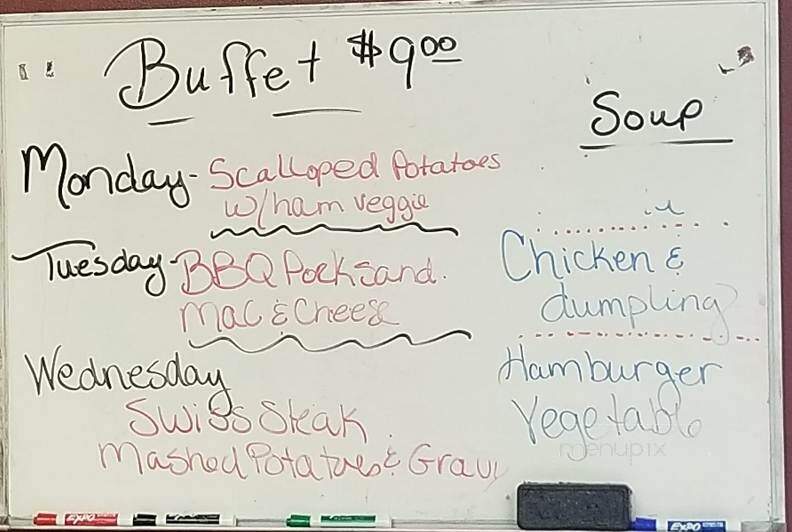 Buffet $9.00
Soup
Monday - Scalloped Potatoes
w/ham veggie
Tuesday - BBQ Pork Sand.
Mac & Cheese
Chicken &
dumpling
Wednesday
Swiss Steak
Mashed Potatoes & Gravy
Hamburger
Vegetable
menupix
EXPO
EXPO